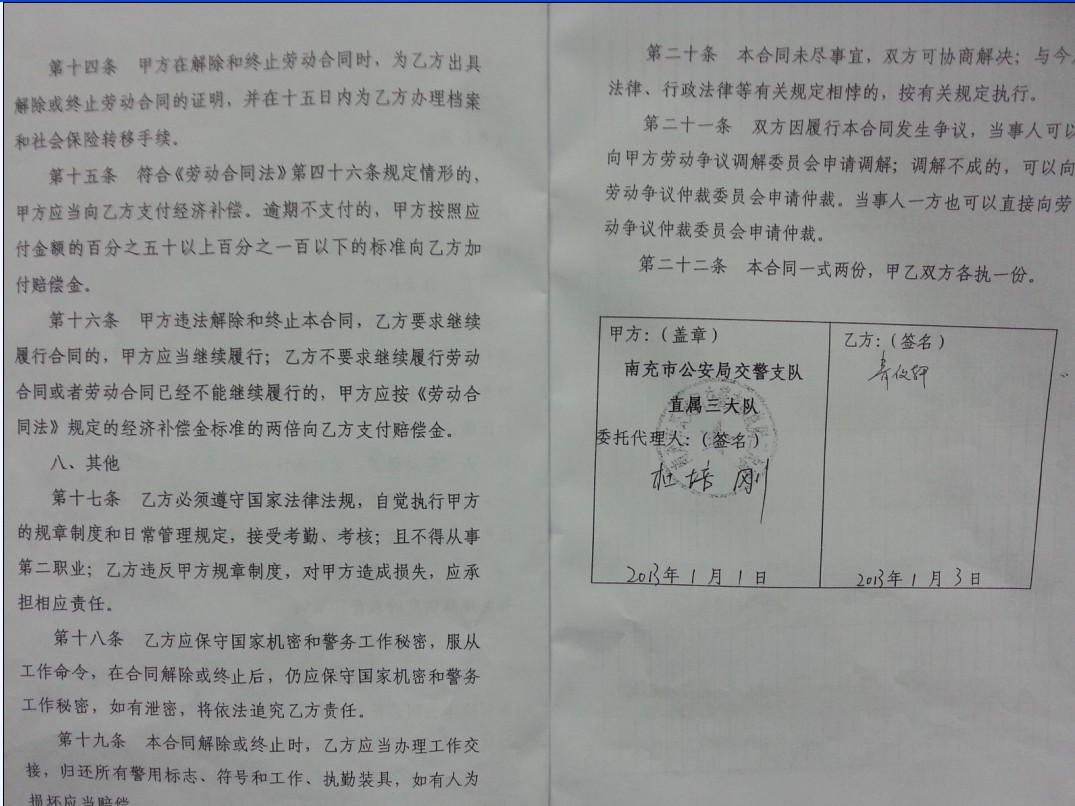 第十四条 甲方在解除和终止劳动合同时，为乙方出具
解除或终止劳动合同的证明，并在十五日内为乙方办理档案
和社会保险转移手续。
第十五条 符合《劳动合同法》第四十六条规定情形的，
甲方应当向乙方支付经济补偿。逾期不支付的，甲方按照应
付金额的百分之五十以上百分之一百以下的标准向乙方加
付赔偿金。
第十六条 甲方违法解除和终止本合同，乙方要求继续
履行合同的，甲方应当继续履行；乙方不要求继续履行劳动
合同或者劳动合同已经不能继续履行的，甲方应按《劳动合
同法》规定的经济补偿金标准的两倍向乙方支付赔偿金。
八、其他
第十七条 乙方必须遵守国家法律法规，自觉执行甲方
的规章制度和日常管理规定，接受考勤、考核；且不得从事
第二职业；乙方违反甲方规章制度，对甲方造成损失，应承
担相应责任。
第十八条 乙方应保守国家机密和警务工作秘密，服从
工作命令，在合同解除或终止后，仍应保守国家机密和警务
工作秘密，如有泄密，将依法追究乙方责任。
第十九条 本合同解除或终止时，乙方应当办理工作交
接，归还所有警用标志、符号和工作、执勤装具，如有人为
损坏应当赔偿
第二十条 本合同未尽事宜，双方可协商解决；与今
法律、行政法律等有关规定相悖的，按有关规定执行。
第二十一条 双方因履行本合同发生争议，当事人可以
向甲方劳动争议调解委员会申请调解；调解不成的，可以向
劳动争议仲裁委员会申请仲裁。当事人一方也可以直接向劳
动争议仲裁委员会申请仲裁。
第二十二条 本合同一式两份，甲乙双方各执一份。
甲方：（盖章）
南充市公安局交警支队
直属三大队
委托代理人：（签名）
杜培刚
2013年1月1日
乙方：（签名）
2013年1月3日